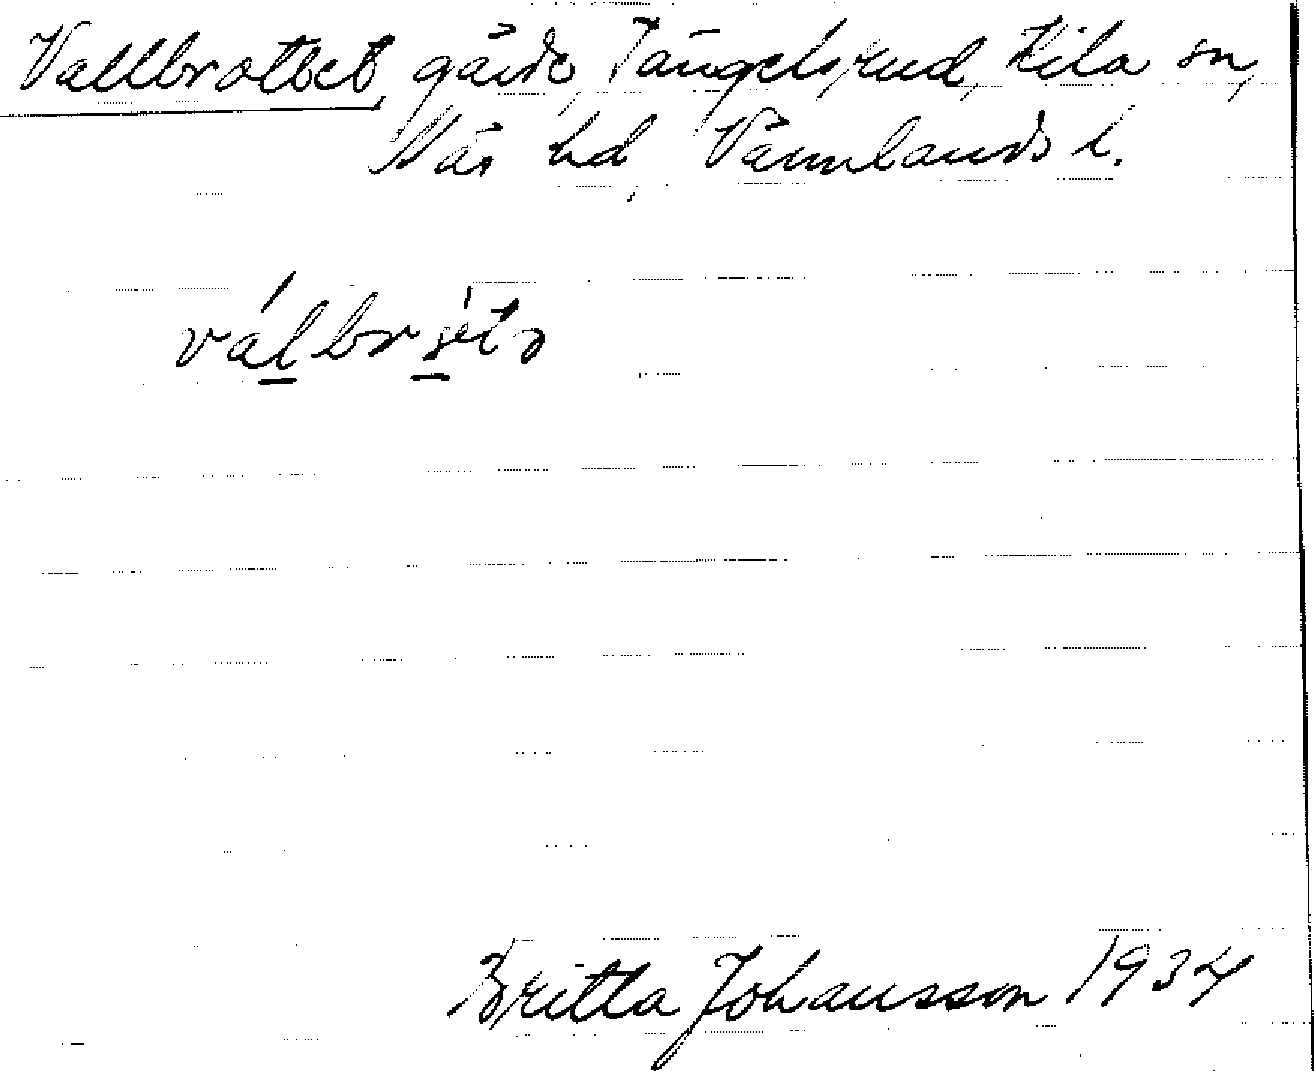 Vallbrottet, gärde, Tängelsrud, Kila sn,
Näs hd, Värmlands l.
Britta Johansson 1934